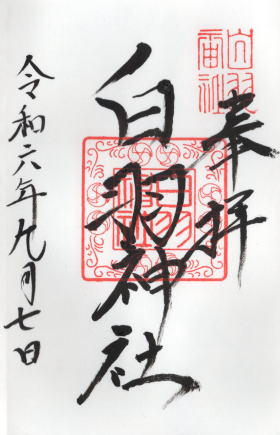 奉拝
白羽神社
令和六年九月七日